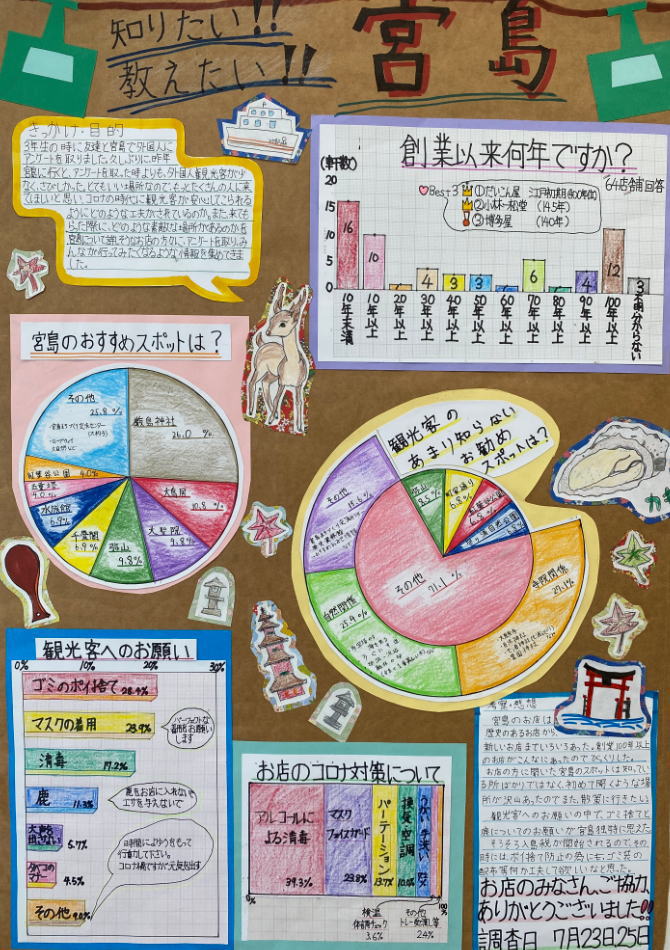 知りたい!!
教えたい!!
宮島
きっかけ・目的
3年生の時に友達と宮島で外国人に
アンケートを取りました。久しぶりに、昨年
宮島に行くと、アンケートを取った時よりも、外国人観光客が少
なく、さびしかった。とてもいい場所なので、もっとたくさんの人に来
てほしいと思い、コロナの時代に観光客が安心してこられる
ようにどのような工夫がされているのか、また、来ても
らった際に、どのような素敵な場所があるのかを
宮島について詳しそうなお店の方々に、アンケートを取り、み
んなが行ってみたくなるような情報を集めてきま
した。
創業以来何年ですか?
(軒数)
64店舗回答
Best3
①だいこん屋 江戸初期(400年位)
②小林一松堂 (145年)
③博多屋 (140年)
20
15
10
5
0
16
10
4
3
3
6
4
12
3
10年未満
10年以上
20年以上
30年以上
40年以上
50年以上
60年以上
70年以上
80年以上
90年以上
100年以上
不明分からない
宮島のおすすめスポットは?
その他
25.8%
厳島神社
26.0%
大鳥居
10.8%
大聖院
9.8%
弥山
9.8%
千畳閣
6.9%
水族館
6.9%
五重塔
4.0%
紅葉谷公園 4.0%
観光客の
あまり知らない
お勧め
スポットは?
その他
15.6%
弥山
8.5%
町家通り
6.8%
紅葉谷公園
6.8%
その他
71.1%
寺院関係
27.1%
自然関係
25.4%
カキ
観光客へのお願い
0% 10% 20% 30%
ゴミのポイ捨て 28.4%
マスクの着用 23.9%
パーフェクトな
着用をお願い
します
消毒 17.2%
鹿 11.3%
鹿をお店に入れないで
エサを与えないで
5.7%
4.5%
その他 9.0%
時間によゆうをもって
行動して下さい。
お店のコロナ対策について
アルコールに
よる消毒
39.3%
マスク
フェイスガード
23.8%
パーテーション
13.7%
換気・空調
10.0%
うがい・手洗い
0%
100%
検温
体調チェック
3.6%
その他
トレー処理し等
2.4%
考察・感想
宮島のお店は
歴史のあるお店から、
新しいお店までいろいろあった。創業100年以上
のお店がこんなにあったのでびっくりした。
お店の方に聞いた宮島のスポットは知ってい
る所ばかりではなく、初めて聞くような場
所が沢山あったのでまた、散策に行きたい。
観光客へのお願いの中で、ゴミ捨てと
鹿についてのお願いが宮島独特に思えた。
そろそろ入島税が開始されるので、その
時には、ポイ捨て防止の為にも、ゴミ袋の
配布等何か工夫して欲しいなと思った。
お店のみなさん、ご協力、
ありがとうございました!!
調査日 7月23日,25日